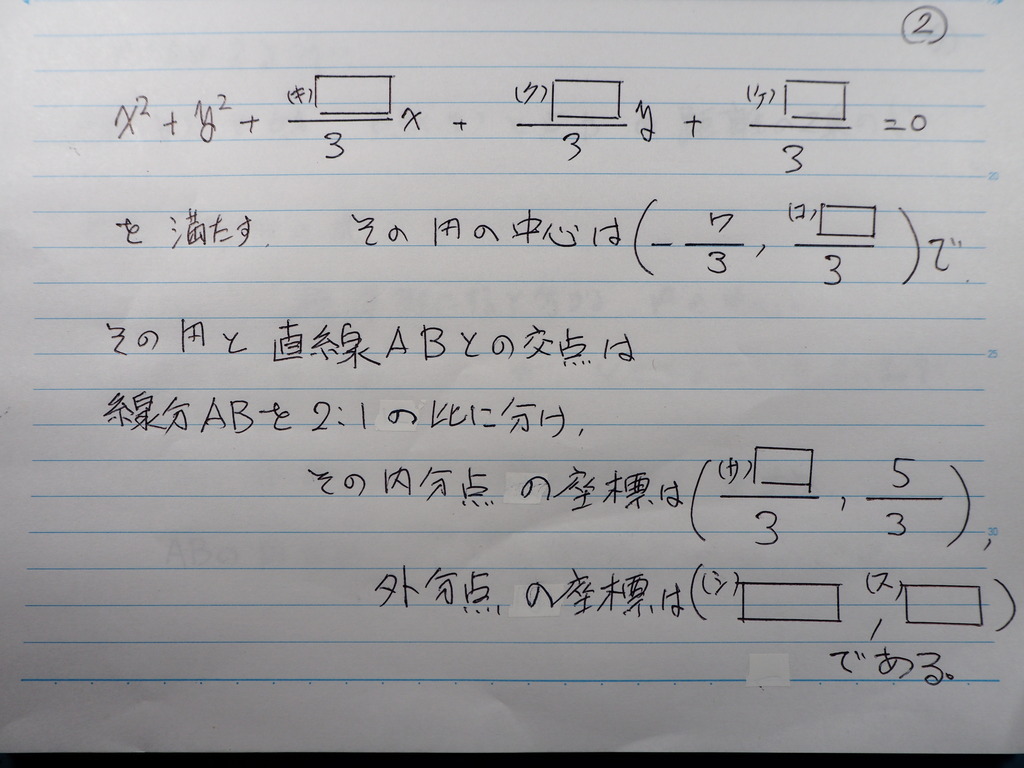 ②
x² + y² + (キ)□/3 x + (ク)□/3 y + (ケ)□/3 = 0
を満たす. その円の中心は(-7/3, (コ)□/3)で.
その円と直線ABとの交点は
線分ABを2:1の比に分け,
その内分点の座標は((サ)□/3, 5/3),
外分点の座標は((シ)□, (ス)□)
である。